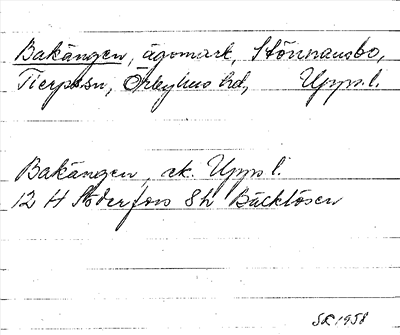 Bakängen, ägomark, Stönnansbo,
Tierps sn, Örbyhus hd, Upps. l.
Bakängen, ek. Upps l.
12 H Söderfors 8h Bäcklösen
SR 1958